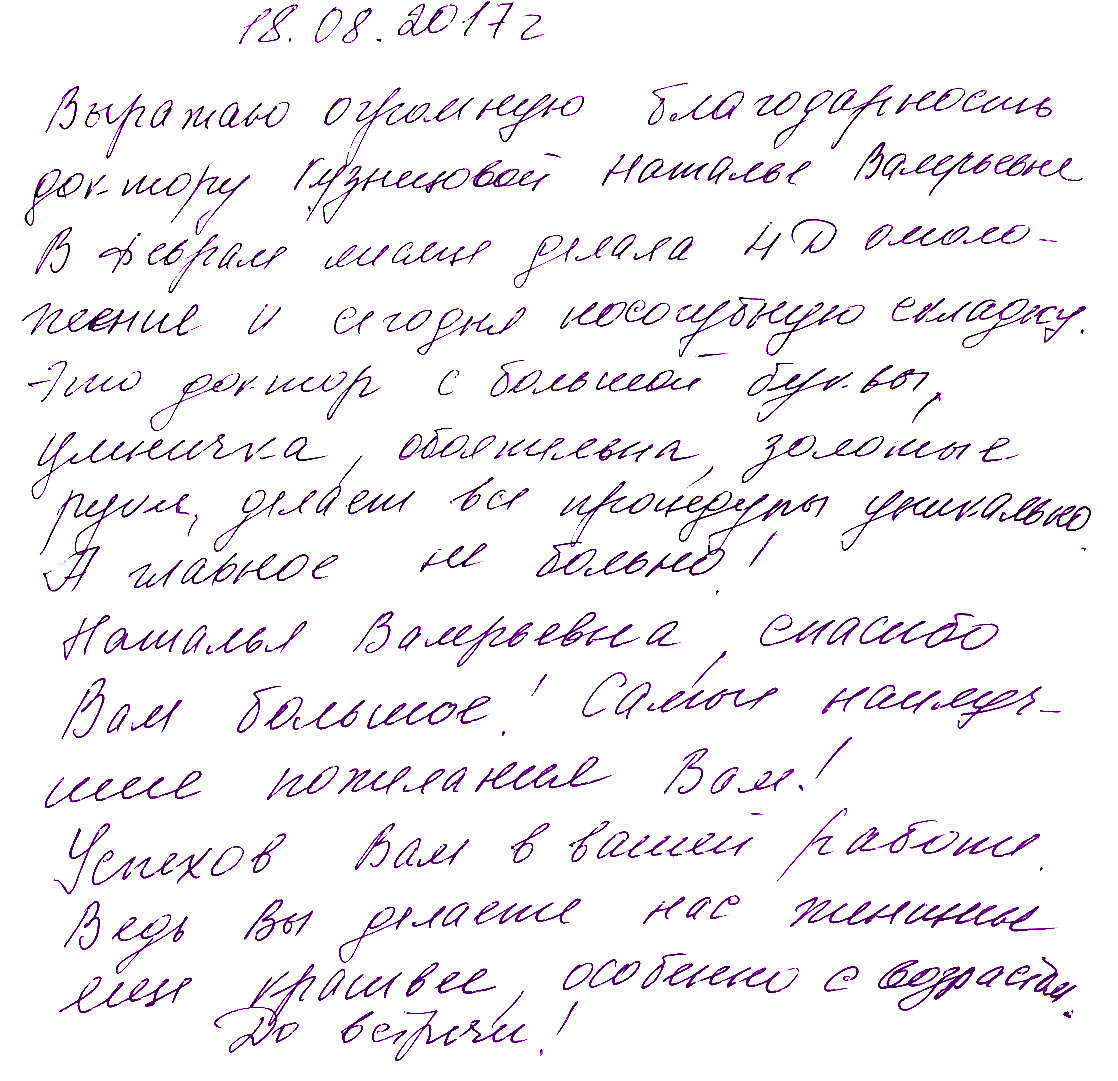 18.08.2017г
Выражаю огромную благодарность
доктору Кузнецовой Наталье Валерьевне
В феврале месяце делала 4D омоло-
жение и сегодня носогубную складку.
Это доктор с большой буквы,
умничка, обоятельна, золотые
руки, делает все процедуры уникально.
А главное не больно!
Наталья Валерьевна, спасибо
Вам большое! Самые наилуч-
шие пожелания Вам!
Успехов Вам в вашей работе.
Ведь Вы делаете нас женщины
еще красивее, особенно с возрастом.
До встречи!